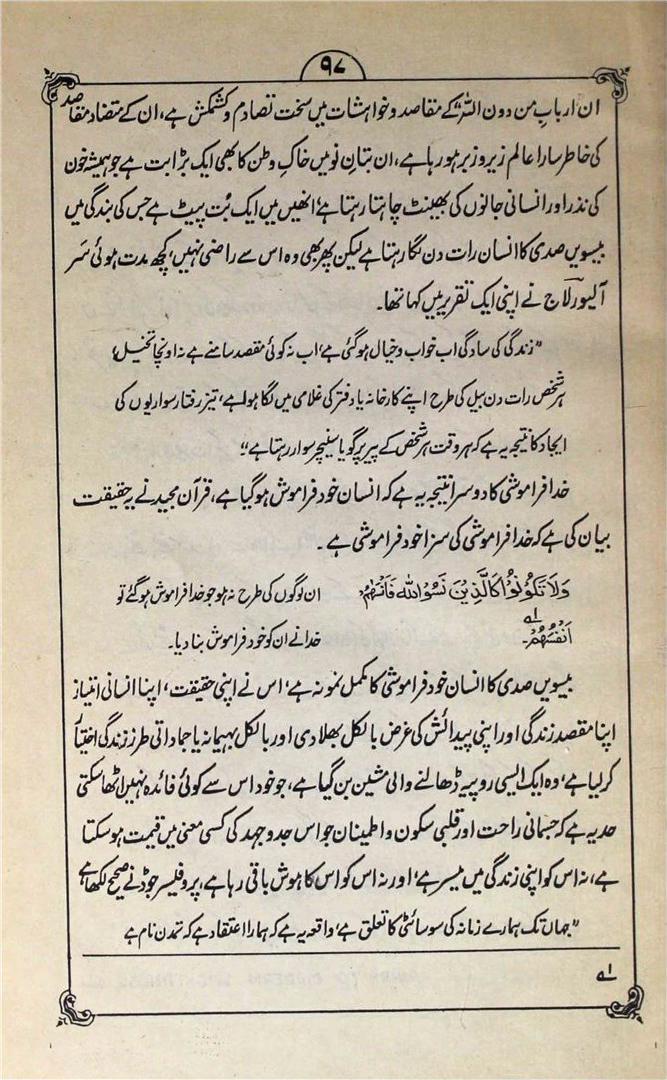 ۹۷
ان ارباب من دون اللہ کے مقاصد و خواہشات میں سخت تصادم و کشمکش ہے، ان کے متضاد مقاصد
کی خاطر سارا عالم زیر و زبر ہو رہا ہے، ان بتانِ نو میں خاکِ وطن کا بھی ایک بڑا بت ہے جو ہمیشہ خون
کی نذر اور انسانی جانوں کی بھینٹ چاہتا رہتا ہے، انھیں میں ایک بُت پیٹ ہے جس کی بندگی میں
بیسویں صدی کا انسان رات دن لگا رہتا ہے لیکن پھر بھی وہ اس سے راضی نہیں، کچھ مدت ہوئی سَر
آلیور لاج نے اپنی ایک تقریر میں کہا تھا۔
"زندگی کی سادگی اب خواب و خیال ہو گئی ہے، اب نہ کوئی مقصد سامنے ہے نہ اونچا تخیل،
ہر شخص رات دن بیل کی طرح اپنے کارخانہ یا دفتر کی غلامی میں لگا ہوا ہے، تیز رفتار سواریوں کی
ایجاد کا نتیجہ یہ ہے کہ ہر وقت ہر شخص کے پیر پر گویا سنیچر سوار رہتا ہے"
خدا فراموشی کا دوسرا نتیجہ یہ ہے کہ انسان خود فراموش ہو گیا ہے، قرآن مجید نے یہ حقیقت
بیان کی ہے کہ خدا فراموشی کی سزا خود فراموشی ہے۔
وَلَا تَكُونُوا كَالَّذِيْنَ نَسُوا اللّٰهَ فَاَنْسٰهُمْ ان لوگوں کی طرح نہ ہو جو خدا فراموش ہو گئے تو
اَنْفُسَهُمْ۔ ؎۱ خدا نے ان کو خود فراموش بنا دیا۔
بیسویں صدی کا انسان خود فراموشی کا مکمل نمونہ ہے، اس نے اپنی حقیقت، اپنا انسانی امتیاز
اپنا مقصد زندگی اور اپنی پیدائش کی غرض بالکل بھلا دی اور بالکل بہیمانہ یا جماداتی طرز زندگی اختیار
کر لیا ہے، وہ ایک ایسی روپیہ ڈھالنے والی مشین بن گیا ہے، جو خود اس سے کوئی فائدہ نہیں اٹھا سکتی
حد یہ ہے کہ جسمانی راحت اور قلبی سکون و اطینان جو اس جد و جہد کی کسی معنی میں قیمت ہو سکتا
ہے، نہ اس کو اپنی زندگی میں میسر ہے، اور نہ اس کو اس کا ہوش باقی رہا ہے، پروفیسر جوڈ نے صحیح لکھا ہے
"جہاں تک ہمارے زمانہ کی سوسائٹی کا تعلق ہے، واقعہ یہ ہے کہ ہمارا اعتقاد ہے کہ تمدن نام ہے
؎۱